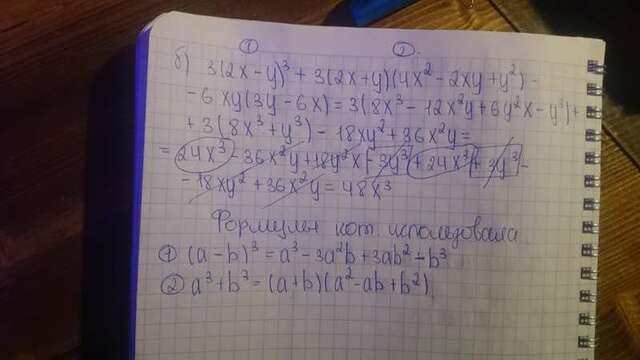 ① ②.
б) 3(2x-y)³ + 3(2x+y)(4x² - 2xy + y²) -
- 6xy(3y - 6x) = 3(8x³ - 12x²y + 6y²x - y³) +
+ 3(8x³ + y³) - 18xy² + 36x²y =
= 24x³ - 36x²y + 18y²x - 3y³ + 24x³ + 3y³ -
- 18xy² + 36x²y = 48x³
Формулы кот. использовала
① (a - b)³ = a³ - 3a²b + 3ab² - b³
② a³ + b³ = (a+b)(a² - ab + b²)